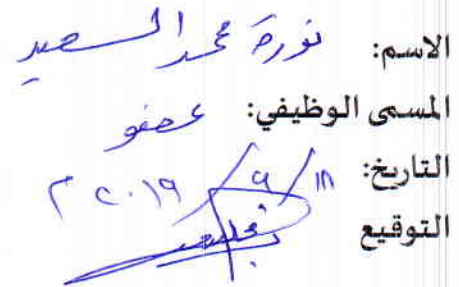 الاسم: نورة محمد السعيد
المسمى الوظيفي: عضو
التاريخ: ١٨/٩/٢٠١٩م
التوقيع